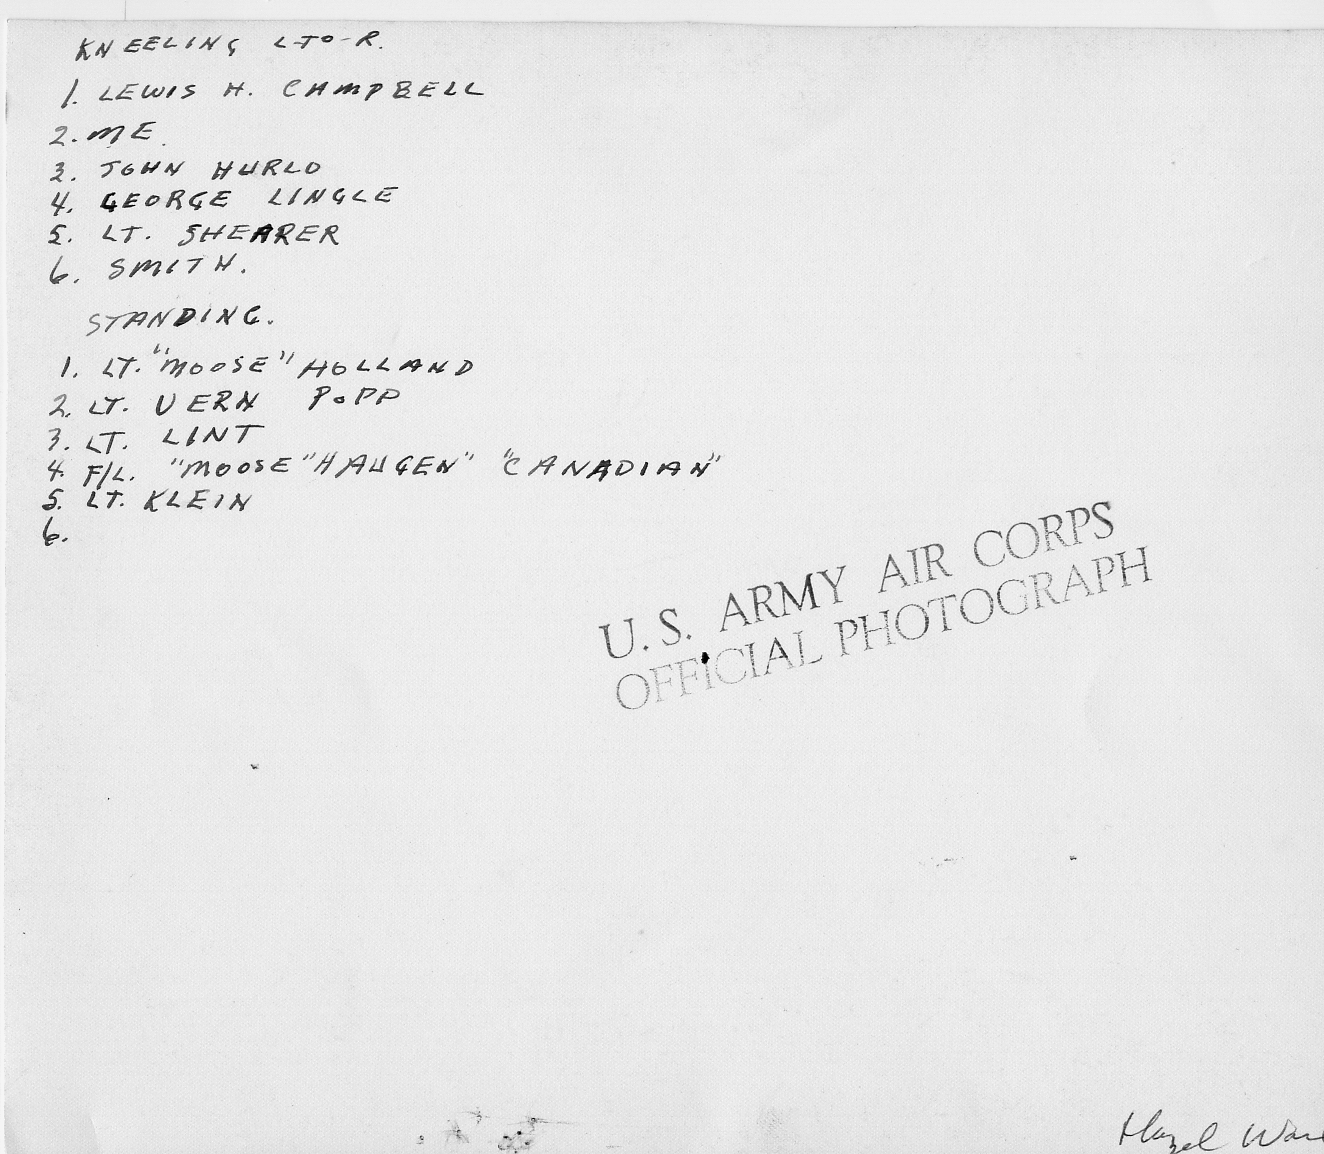 KNEELING L-TO-R.
1. LEWIS H. CAMPBELL
2. ME.
3. JOHN HURLO
4. GEORGE LINGLE
5. LT. SHEARER
6. SMITH.
STANDING.
1. LT. "MOOSE" HOLLAND
2. LT. VERN POPP
3. LT. LINT
4. F/L. "MOOSE "HAUGEN" "CANADIAN"
5. LT. KLEIN
6.
U.S. ARMY AIR CORPS
OFFICIAL PHOTOGRAPH
Hazel